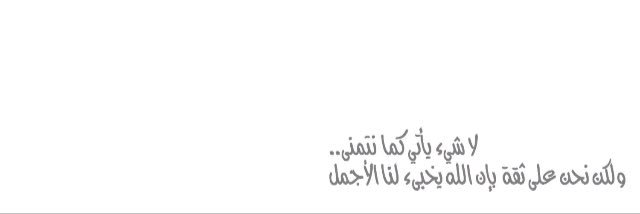 لا شيء يأتي كما نتمنى..
ولكن نحن على ثقة بإن الله يخبيء لنا الأجمل